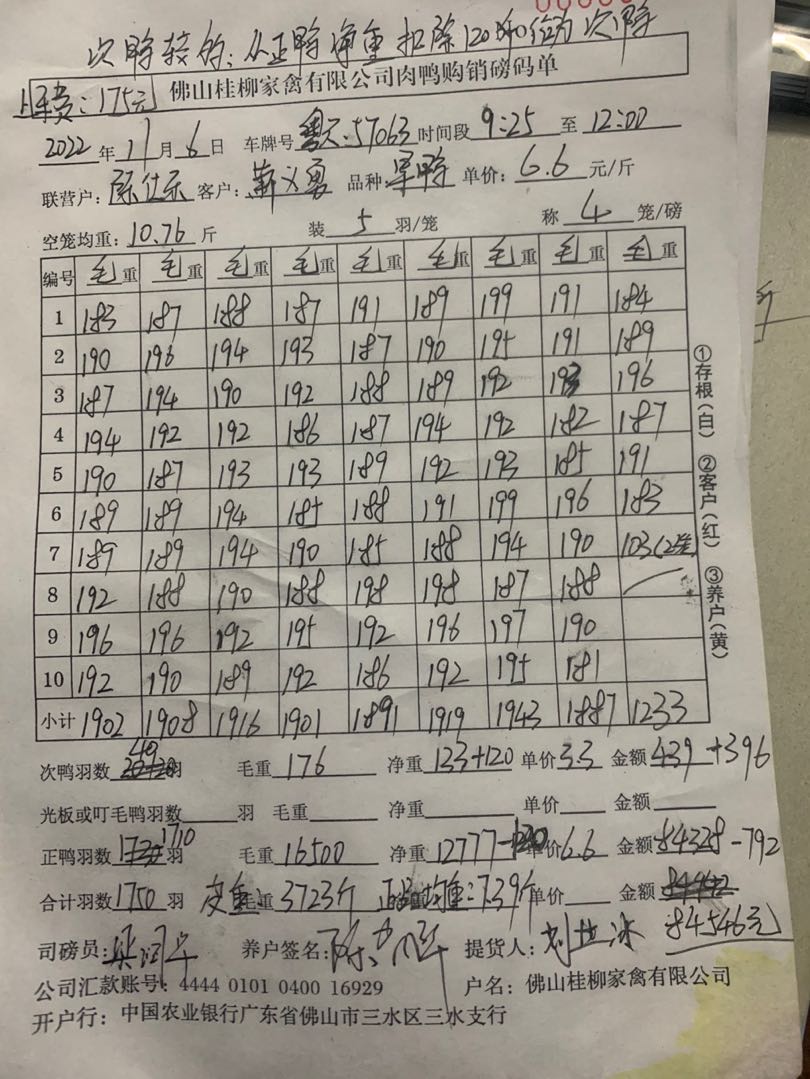 次鸭较多：从正鸭净重扣除120斤给次鸭
175元 佛山桂柳家禽有限公司肉鸭购销磅码单
2022 年 11 月 6 日 车牌号 57063 时间段 9:25 至 12:00
联营户： 客户： 品种 单价：6.6 元/斤
空笼均重：10.76 斤 装 5 羽/笼 称 4 笼/磅
编号 毛重 毛重 毛重 毛重 毛重 毛重 毛重 毛重 毛重
1 183 187 188 187 191 189 199 191 184
2 190 196 194 193 187 190 195 191 189
3 187 194 190 192 188 189 192 193 196
4 194 192 192 186 187 194 192 182 187
5 190 187 193 193 189 192 193 185 191
6 189 189 194 185 188 191 199 196 183
7 189 189 194 190 185 188 194 190 103(2笼)
8 192 188 190 188 198 198 187 188
9 196 196 192 195 192 196 197 190
10 192 190 189 192 186 192 195 181
小计 1902 1908 1916 1901 1891 1919 1943 1887 1233
次鸭羽数 40 羽 毛重 176 净重 133+120 单价 3.3 金额 439+396
光板或叮毛鸭羽数 羽 毛重 净重 单价 金额
正鸭羽数 1710 羽 毛重 16500 净重 12777-120 单价 6.6 金额 84328-792
合计羽数 1750 羽 皮重：3723斤 均重：7.39斤 单价 金额
84546元
司磅员： 养户签名： 提货人：
公司汇款账号：4444 0101 0400 16929 户名：佛山桂柳家禽有限公司
开户行：中国农业银行广东省佛山市三水区三水支行
①存根（白） ②客户（红） ③养户（黄）